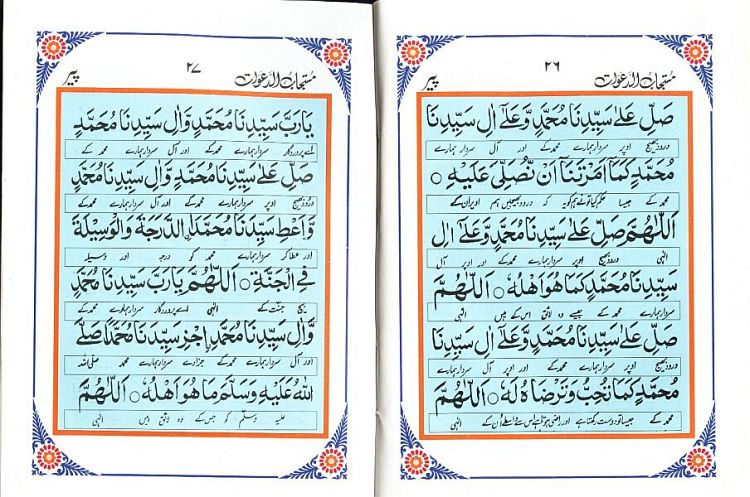 مستجاب الدعوات ۲۶ پیر
صَلِّ عَلٰى سَيِّدِنَا مُحَمَّدٍ وَّعَلٰٓى اٰلِ سَيِّدِنَا
درود بھیج اوپر سردار ہمارے محمد کے اور اوپر آل سردار ہمارے
مُحَمَّدٍ كَمَآ اَمَرْتَنَآ اَنْ نُّصَلِّىَ عَلَيْهِ ○
محمد کے جیسا حکم کیا تونے ہم کو یہ کہ درود بھیجیں ہم اوپر ان کے
اَللّٰهُمَّ صَلِّ عَلٰى سَيِّدِنَا مُحَمَّدٍ وَّعَلٰٓى اٰلِ
الٰہی درود بھیج اوپر سردار ہمارے محمد کے اور اوپر آل
سَيِّدِنَا مُحَمَّدٍ كَمَا هُوَ اَهْلُهٗ ○ اَللّٰهُمَّ
سردار ہمارے محمد کے جیسے وہ لائق اس کے ہیں الٰہی
صَلِّ عَلٰى سَيِّدِنَا مُحَمَّدٍ وَّعَلٰٓى اٰلِ سَيِّدِنَا
درود بھیج اوپر سردار ہمارے محمد کے اور اوپر آل سردار ہمارے
مُحَمَّدٍ كَمَا تُحِبُّ وَتَرْضَاهُ لَهٗ ○ اَللّٰهُمَّ
محمد کے جیسا تو دوست رکھتا ہے اور راضی ہوتا ہے اس واسطے ان کے الٰہی
مستجاب الدعوات ۲۷ پیر
يَارَبَّ سَيِّدِنَا مُحَمَّدٍ وَّاٰلِ سَيِّدِنَا مُحَمَّدٍ
اے پروردگار سردار ہمارے محمد کے اور آل سردار ہمارے محمد کے
صَلِّ عَلٰى سَيِّدِنَا مُحَمَّدٍ وَّاٰلِ سَيِّدِنَا مُحَمَّدٍ
درود بھیج اوپر سردار ہمارے محمد کے اور آل سردار ہمارے محمد کے
وَّاَعْطِ سَيِّدَنَا مُحَمَّدَ ۨالدَّرَجَةَ وَالْوَسِيْلَةَ
اور عطا کر سردار ہمارے محمد کو درجہ اور وسیلہ
فِى الْجَنَّةِ ○ اَللّٰهُمَّ يَارَبَّ سَيِّدِنَا مُحَمَّدٍ
بیچ جنت کے الٰہی اے پروردگار سردار ہمارے محمد کے
وَّاٰلِ سَيِّدِنَا مُحَمَّدٍ اِجْزِ سَيِّدَنَا مُحَمَّدًا صَلَّى
اور آل سردار ہمارے محمد کے جزا دے سردار ہمارے محمد صلی اللہ
اللّٰهُ عَلَيْهِ وَسَلَّمَ مَا هُوَ اَهْلُهٗ ○ اَللّٰهُمَّ
علیہ وسلم کو جس کے وہ لائق ہیں الٰہی